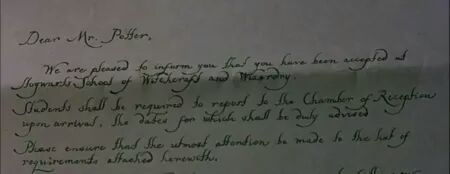 Dear Mr. Potter,
We are pleased to inform you that you have been accepted at
Hogwarts School of Witchcraft and Wizardry.
Students shall be required to report to the Chamber of Reception
upon arrival, the dates for which shall be duly advised
Please ensure that the utmost attention be made to the list of
requirements attached herewith.